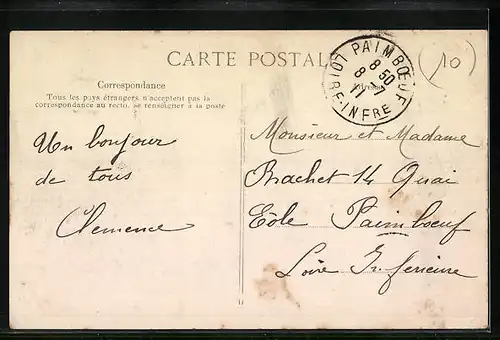 CARTE POSTALE
Correspondance
Tous les pays étrangers n'acceptent pas la
correspondance au recto, se renseigner à la poste
Un bonjour
de tous
Clemence
PAIMBŒUF
8 50
LOIRE-INFRE
(10)
Monsieur et Madame
Brachet 14 Quai
Eole Paimboeuf
Loire Inferieure